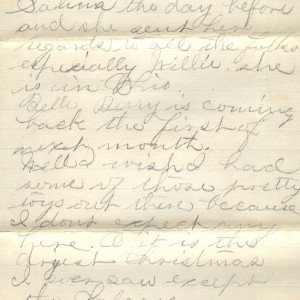 Salina the day before
and she sent her
regards to all the folks
especially Willie. she
is in Ohio.
Belle Berry is coming
back the first of
next month.
Well I wish I had
some of those pretty
toys out there because
I dont expect any
here. O it is the
dryest Christmas
I ever saw except
the